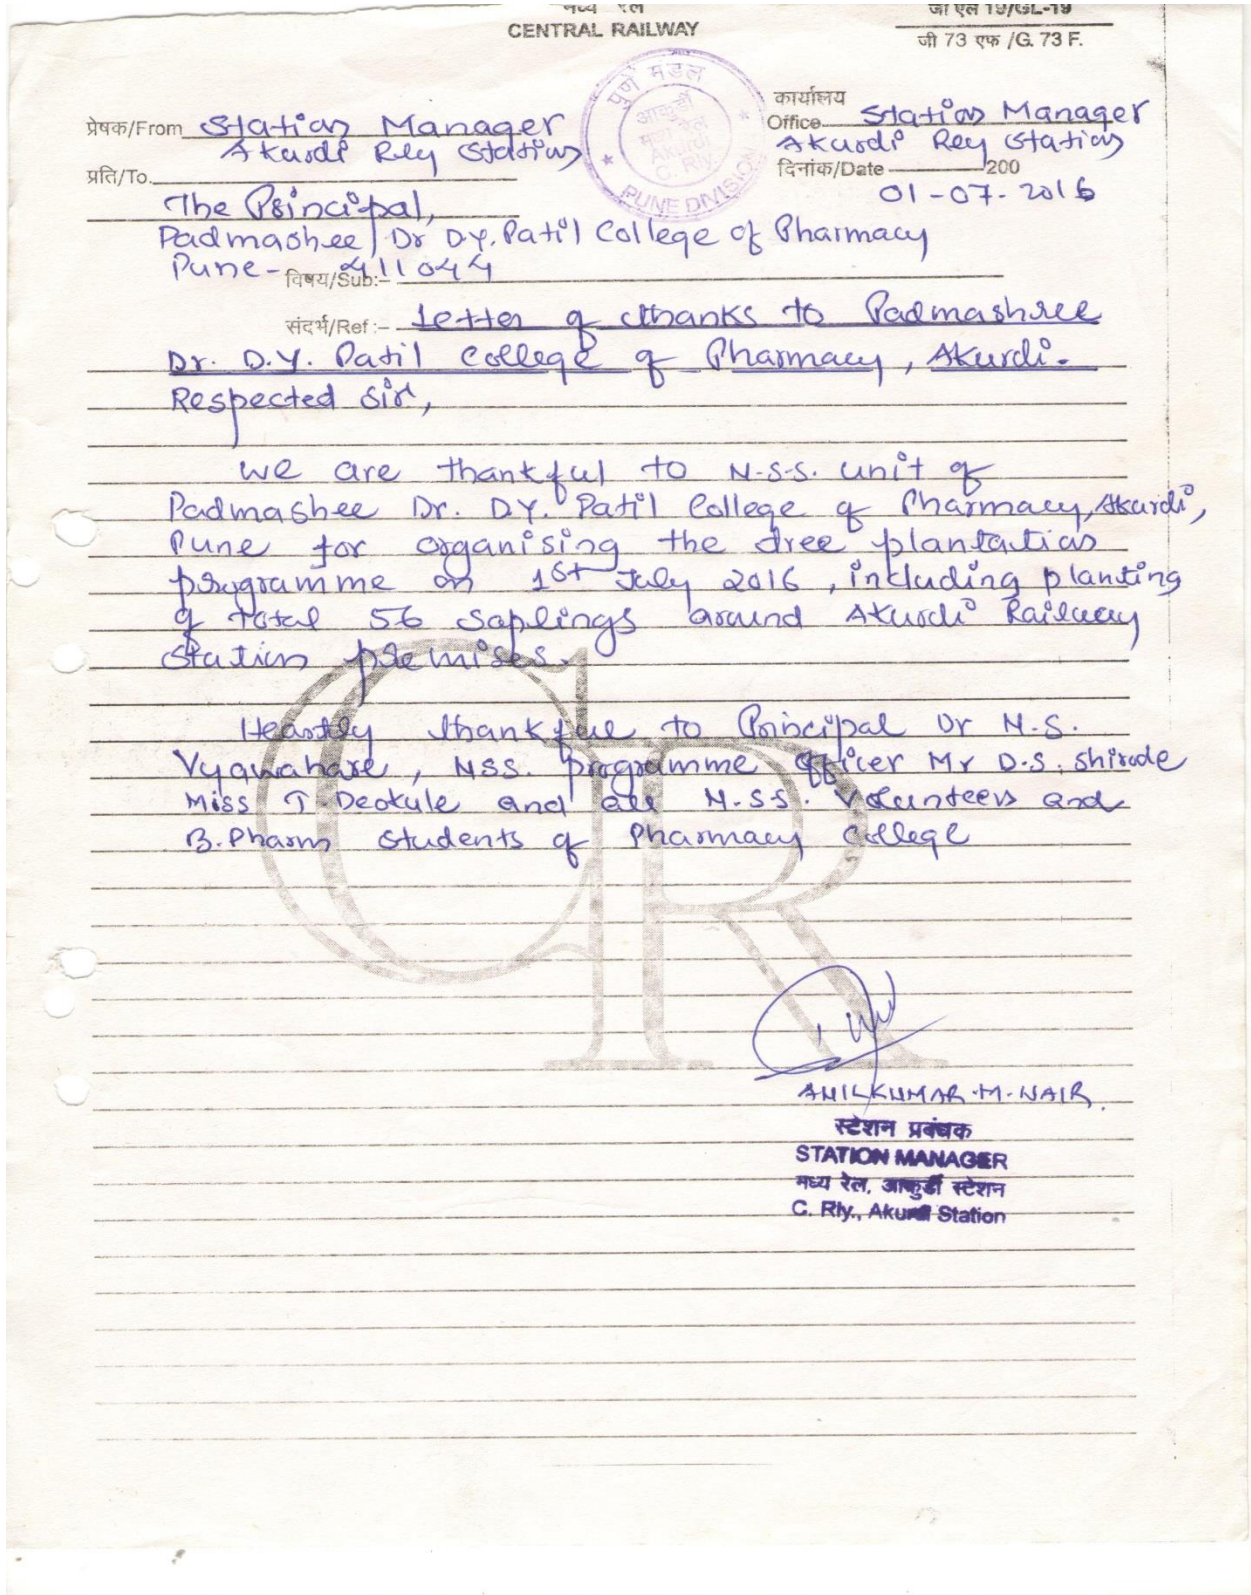 मध्य रेल
CENTRAL RAILWAY
जी एल 19/GL-19
जी 73 एफ /G. 73 F.
पुणे मंडल
आकुर्डी
मध्य रेल
Akurdi
C. Rly.
PUNE DIVISION
कार्यालय
प्रेषक/From Station Manager
Akurdi Rly Station
Office Station Manager
Akurdi Rly Station
प्रति/To.
दिनांक/Date 200
01-07-2016
The Principal,
Padmashee Dr D.Y. Patil College of Pharmacy
Pune - 411044
विषय/Sub:-
संदर्भ/Ref :- Letter of thanks to Padmashree
Dr. D.Y. Patil College of Pharmacy, Akurdi.
Respected Sir,
We are thankful to N.S.S. unit of
Padmashee Dr. D.Y. Patil College of Pharmacy, Akurdi,
Pune for organising the tree plantation
programme on 1st July 2016, including planting
of total 56 saplings around Akurdi Railway
station premises.
Heartly thankful to Principal Dr N.S.
Vyawahare, NSS. programme officer Mr D.S. Shirode
Miss T. Deokule and all N.S.S. Volunteers and
B.Pharm students of Pharmacy College
CR
ANILKUMAR.M.NAIR.
स्टेशन प्रबंधक
STATION MANAGER
मध्य रेल, आकुर्डी स्टेशन
C. Rly., Akurdi Station